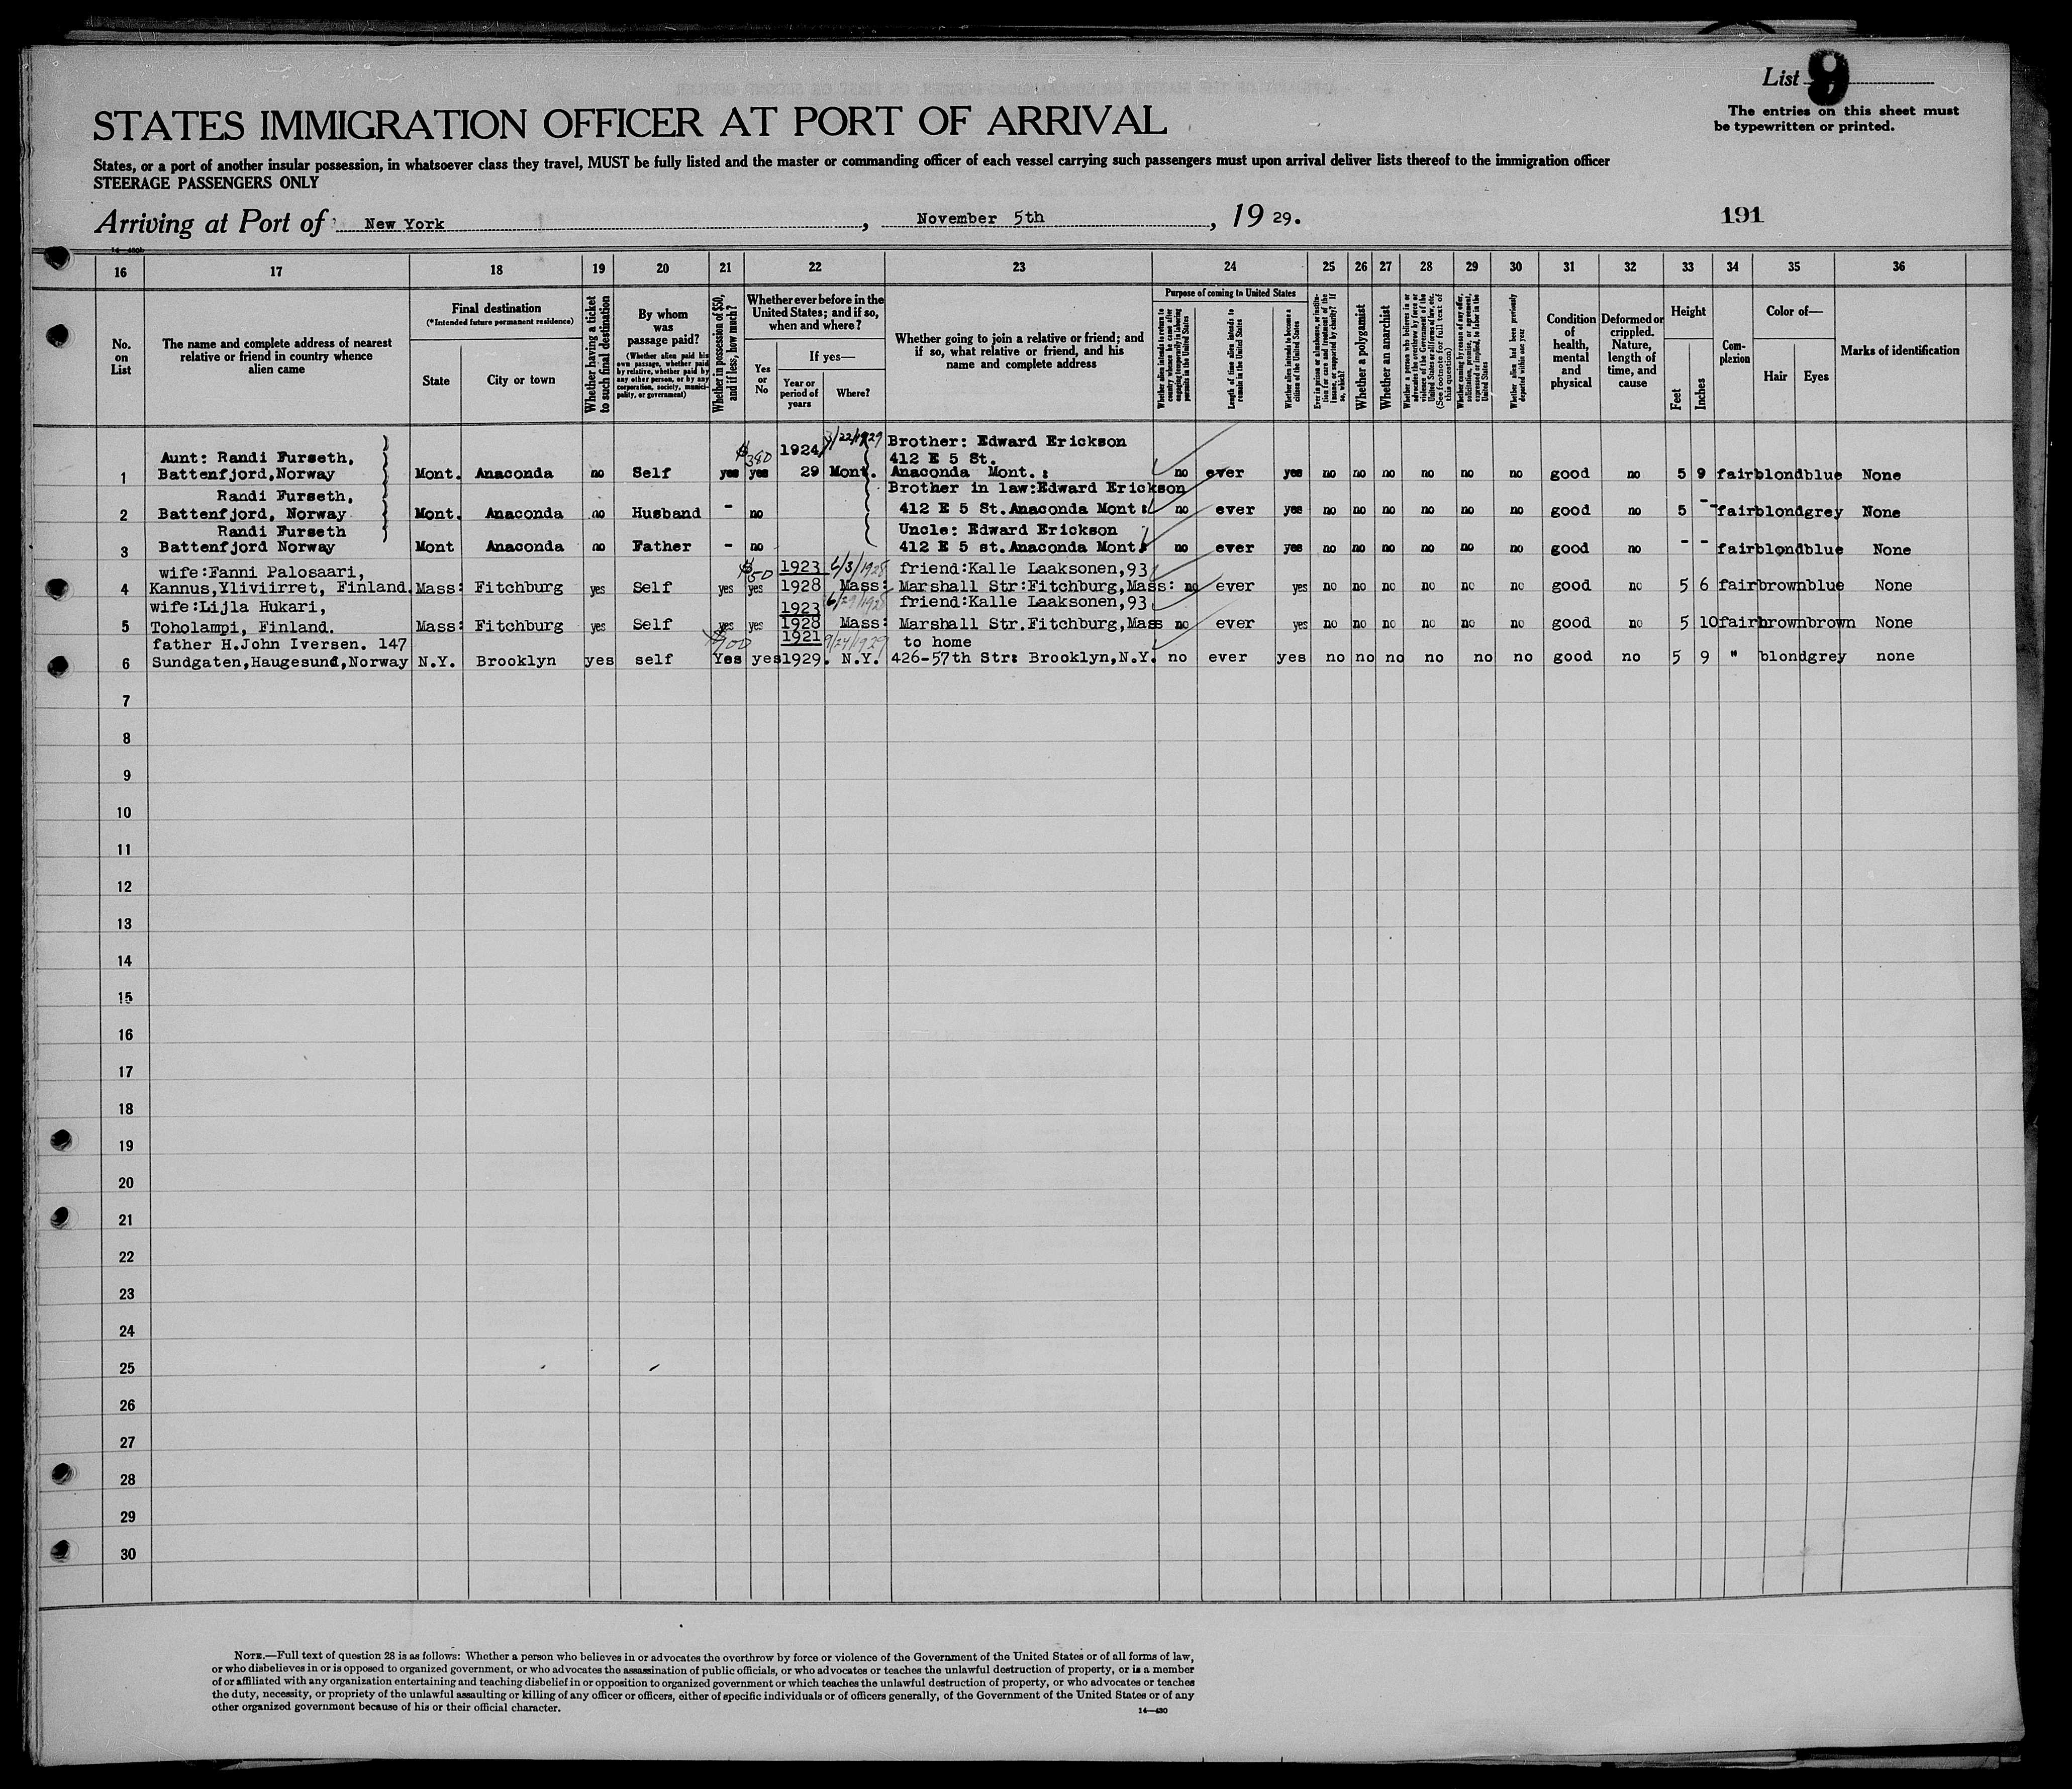 List 9
The entries on this sheet must
be typewritten or printed.
STATES IMMIGRATION OFFICER AT PORT OF ARRIVAL
States, or a port of another insular possession, in whatsoever class they travel, MUST be fully listed and the master or commanding officer of each vessel carrying such passengers must upon arrival deliver lists thereof to the immigration officer
STEERAGE PASSENGERS ONLY
Arriving at Port of New York, November 5th, 19 29.
191
16 17 18 19 20 21 22 23 24 25 26 27 28 29 30 31 32 33 34 35 36
No.
on
List
The name and complete address of nearest
relative or friend in country whence
alien came
Final destination
(*Intended future permanent residence)
State
City or town
Whether having a ticket
to such final destination
By whom
was
passage paid?
(Whether alien paid his
own passage, whether paid
by relative, whether paid by
any other person, or by any
corporation, society, munici-
pality, or government)
Whether in possession of $50,
and if less, how much?
Whether ever before in the
United States; and if so,
when and where?
Yes
or
No
If yes—
Year or
period of
years
Where?
Whether going to join a relative or friend; and
if so, what relative or friend, and his
name and complete address
Purpose of coming to United States
Whether alien intends to return to
country whence he came after
engaging temporarily in laboring
pursuits in the United States
Length of time alien intends to
remain in the United States
Whether alien intends to become a
citizen of the United States
Ever in prison or almshouse, or institu-
tion for care and treatment of the
insane, or supported by charity? If
so, which?
Whether a polygamist
Whether an anarchist
Whether a person who believes in or
advocates the overthrow by force or
violence of the Government of the
United States or all forms of law, etc.
(See footnote for full text of
this question)
Whether coming by reason of any offer,
solicitation, promise, or agreement,
expressed or implied, to labor in the
United States
Whether alien had been previously
deported within one year
Condition
of
health,
mental
and
physical
Deformed or
crippled.
Nature,
length of
time, and
cause
Height
Feet
Inches
Com-
plexion
Color of—
Hair
Eyes
Marks of identification
Aunt: Randi Furseth, $380 1924 3/22/1929 Brother: Edward Erickson
412 E 5 St.
1 Battenfjord,Norway Mont. Anaconda no Self yes yes 29 Mont. Anaconda Mont.: no ever yes no no no no no no good no 5 9 fair blond blue None
Randi Furseth, Brother in law:Edward Erickson
2 Battenfjord, Norway Mont. Anaconda no Husband - no 412 E 5 St.Anaconda Mont: no ever yes no no no no no no good no 5 - fair blond grey None
Randi Furseth Uncle: Edward Erickson
3 Battenfjord Norway Mont Anaconda no Father - no 412 E 5 st.Anaconda Mont. no ever yes no no no no no no good no - - fair blond blue None
wife:Fanni Palosaari, $50 1923 6/3/1928 friend:Kalle Laaksonen,93
4 Kannus,Yliviirret, Finland. Mass: Fitchburg yes Self yes yes 1928 Mass: Marshall Str:Fitchburg,Mass: no ever yes no no no no no no good no 5 6 fair brown blue None
wife:Lijla Hukari, 1923 friend:Kalle Laaksonen,93
5 Toholampi, Finland. Mass: Fitchburg yes Self yes yes 1928 Mass: Marshall Str.Fitchburg,Mass no ever yes no no no no no no good no 5 10 fair brown brown None
father H.John Iversen. 147 1921 9/24/1929 to home
6 Sundgaten,Haugesund,Norway N.Y. Brooklyn yes self Yes yes 1929. N.Y. 426-57th Str: Brooklyn,N.Y. no ever yes no no no no no no good no 5 9 " blond grey none
7
8
9
10
11
12
13
14
15
16
17
18
19
20
21
22
23
24
25
26
27
28
29
30
NOTE.—Full text of question 28 is as follows: Whether a person who believes in or advocates the overthrow by force or violence of the Government of the United States or of all forms of law,
or who disbelieves in or is opposed to organized government, or who advocates the assassination of public officials, or who advocates or teaches the unlawful destruction of property, or is a member
of or affiliated with any organization entertaining and teaching disbelief in or opposition to organized government or which teaches the unlawful destruction of property, or who advocates or teaches
the duty, necessity, or propriety of the unlawful assaulting or killing of any officer or officers, either of specific individuals or of officers generally, of the Government of the United States or of any
other organized government because of his or their official character.
14—430